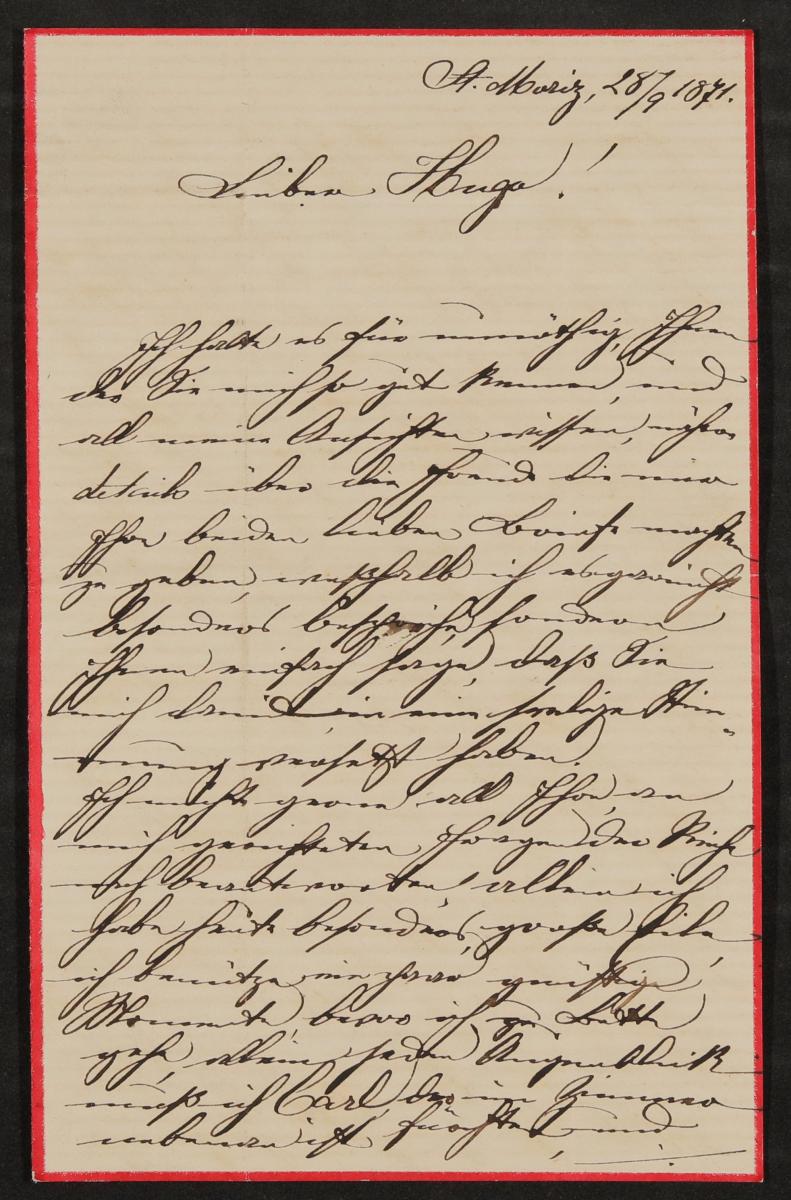 St. Moriz, 28/9 1871.
Lieber Hugo!
Ich halte es für unnöthig, Ihnen
der Sie mich so gut kennen, und
all meine Ansichten wissen, nähere
details über die Freude die mir
Ihre beiden lieben Briefe machten
zu geben, weßhalb ich es gar nicht
besonders bespreche, sondern
Ihnen einfach sage, daß Sie
mich damit in eine selige Stim-
mung versetzt haben.
Ich möchte gerne all Ihre, an
mich gerichteten Fragen der Reihe
nach beantworten, allein ich
habe heute besonders große Eile,
ich benütze ein paar günstige
Momente, bevor ich zu Bette
gehe, allein jeden Augenblick
muß ich Carl, der im Zimmer
nebenan ist, fürchten, und